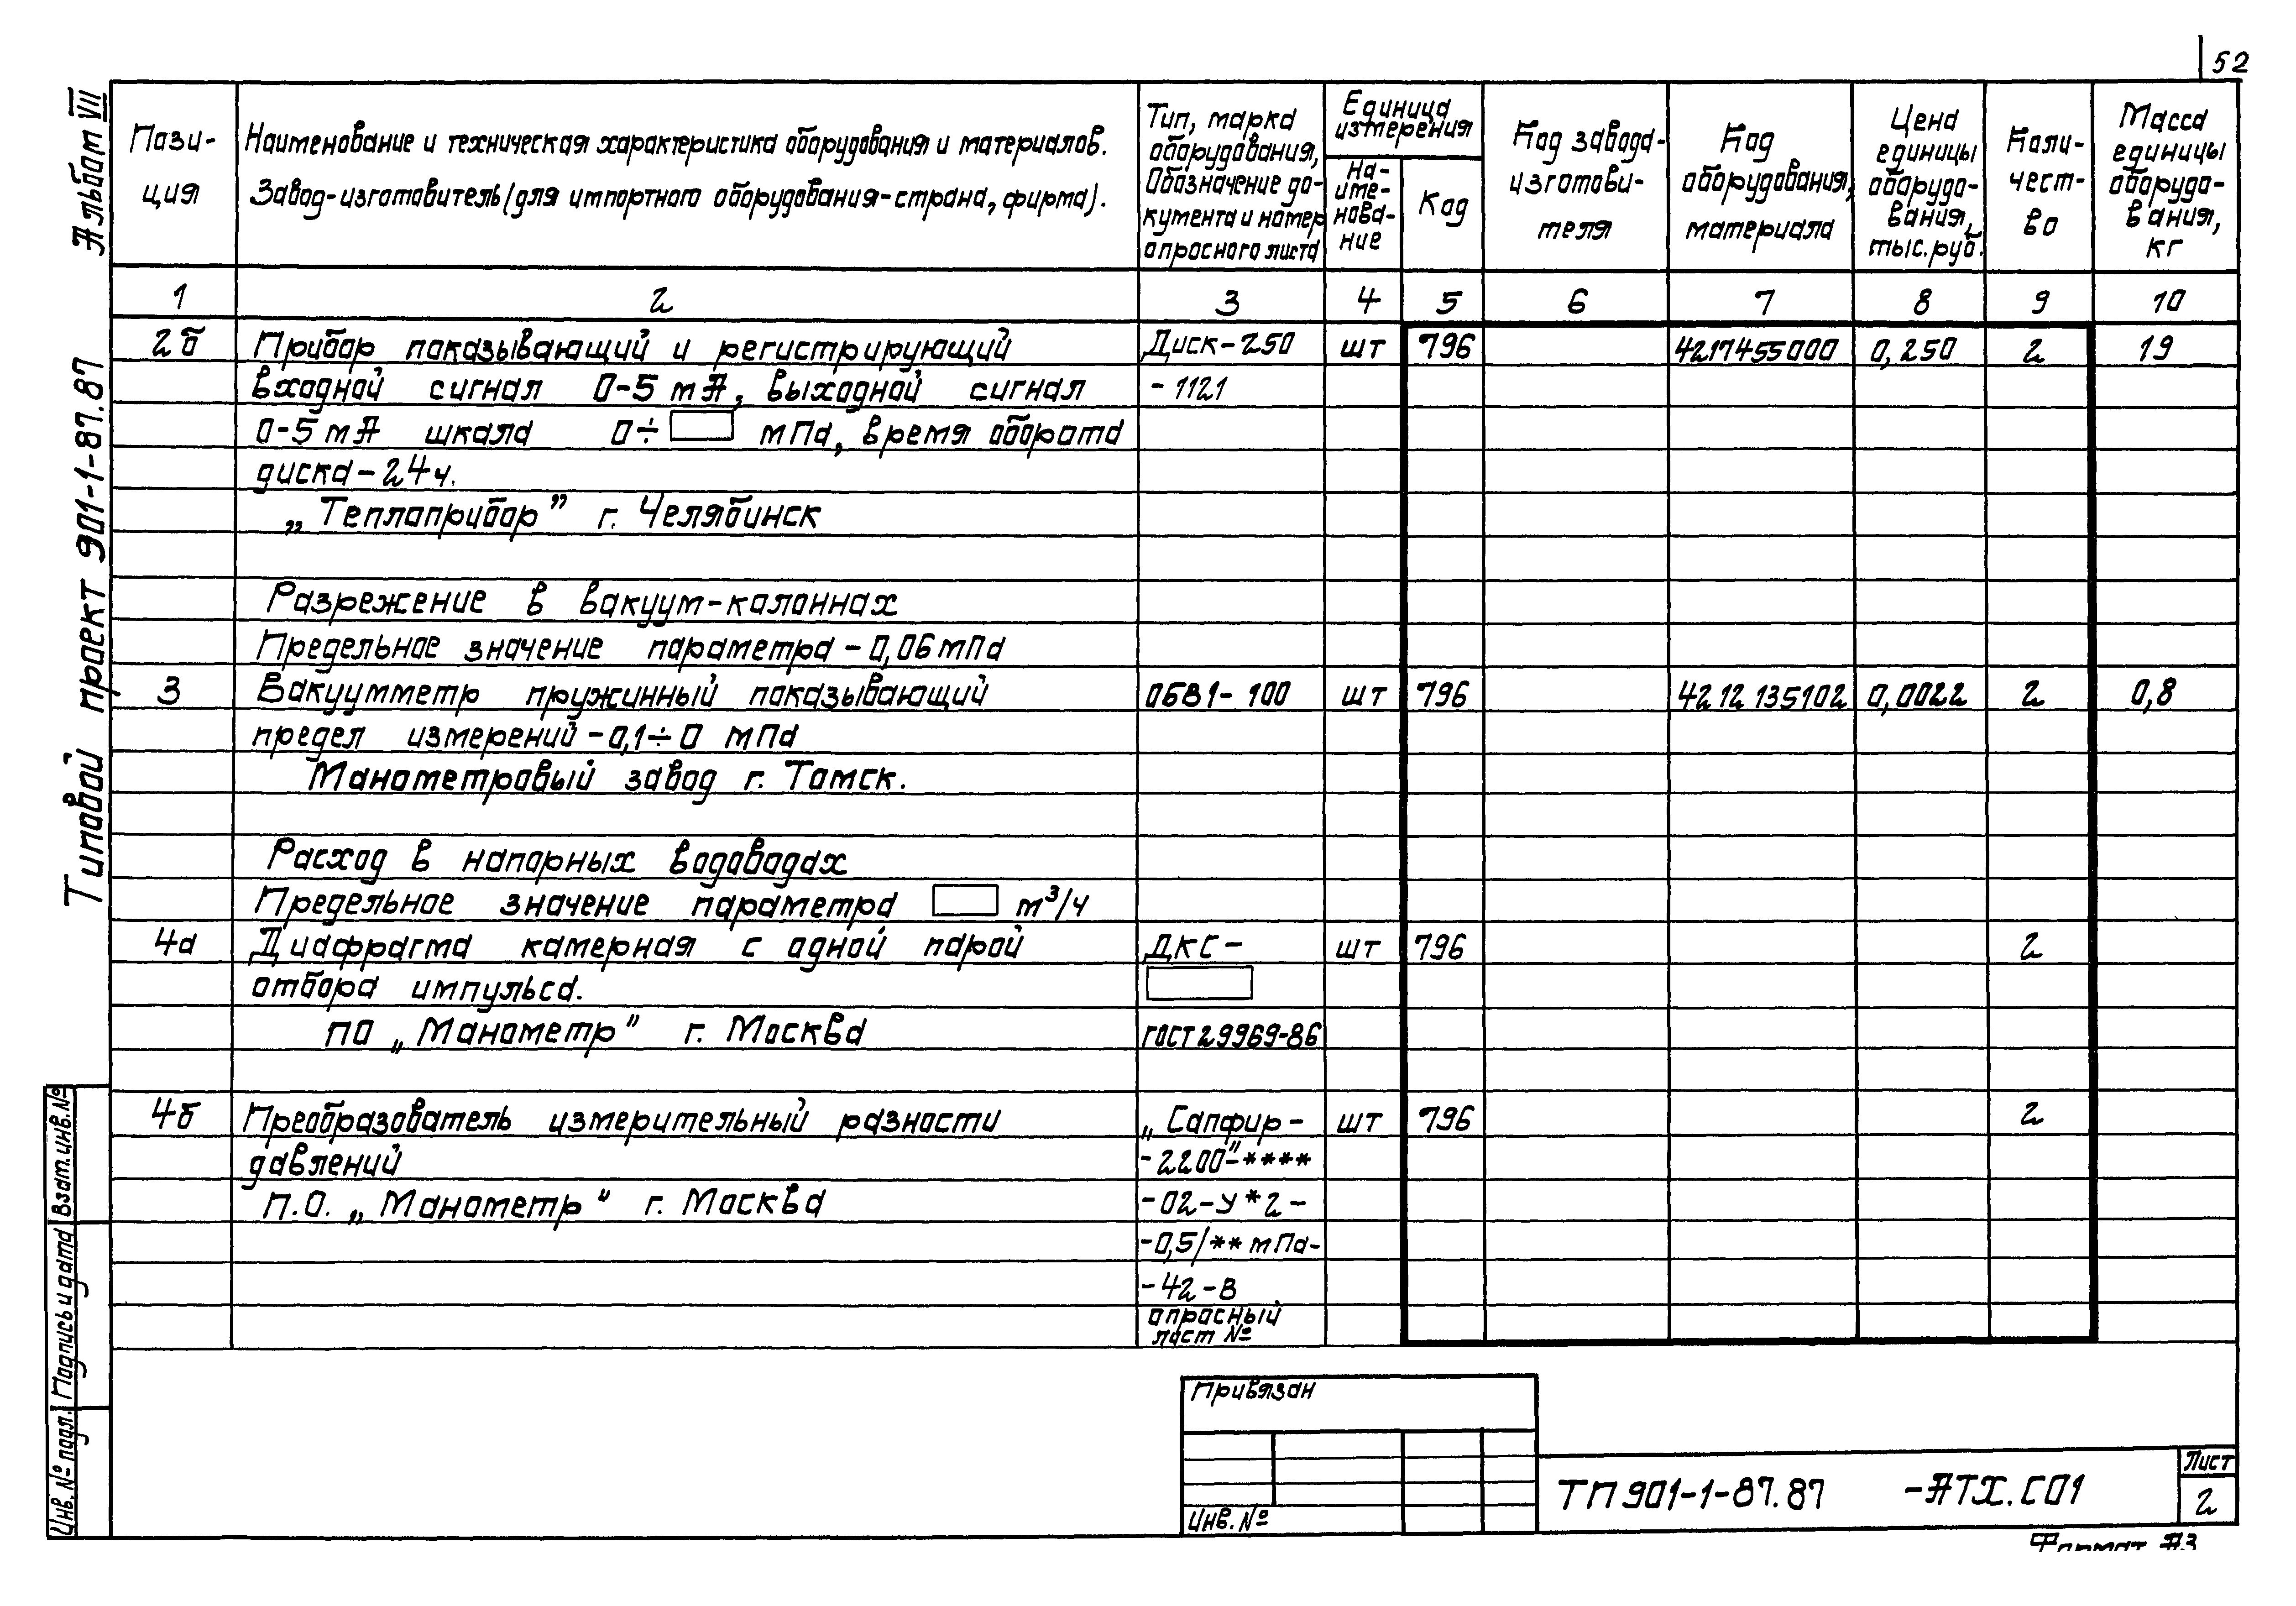 52
Альбом VII
Типовой проект 901-1-87.87
Пози-
ция
Наименование и техническая характеристика оборудования и материалов.
Завод-изготовитель (для импортного оборудования-страна, фирма).
Тип, марка
оборудования,
Обозначение до-
кумента и номер
опросного листа
Единица
измерения
На-
име-
нова-
ние
Код
Код завода-
изготови-
теля
Код
оборудования,
материала
Цена
единицы
оборудо-
вания,
тыс.руб.
Коли-
чест-
во
Масса
единицы
оборудо-
вания,
кг
1 2 3 4 5 6 7 8 9 10
2б Прибор показывающий и регистрирующий Диск-250 шт 796 4217455000 0,250 2 19
входной сигнал 0-5 mA, выходной сигнал -1121
0-5 mA шкала 0÷ мПа, время оборота
диска-24ч.
„Теплоприбор” г. Челябинск
Разрежение в вакуум-колоннах
Предельное значение параметра -0,06 мПа
3 Вакуумметр пружинный показывающий ОБВ1-100 шт 796 4212135102 0,0022 2 0,8
предел измерений -0,1÷0 мПа
Манометровый завод г. Томск.
Расход в напорных водоводах
Предельное значение параметра м³/ч
4а Диафрагма камерная с одной парой ДКС- шт 796 2
отбора импульса.
ПО „Манометр” г. Москва ГОСТ 29969-86
4б Преобразователь измерительный разности „Сапфир- шт 796 2
давлений -2200”-****
П.О. „Манометр” г. Москва -02-У*2-
-0,5/**мПа-
-42-В
опросный
лист №
Взам.инв.№
Подпись и дата
Инв.№ подл.
Привязан
Инв.№
ТП 901-1-87.87 -АТХ.СО1
Лист
2
Формат А3